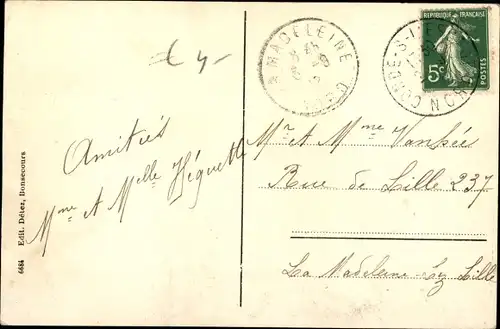 £ 4-
LA MADELEINE
NORD
RÉPUBLIQUE FRANÇAISE
5c
POSTES
NORD
Amitiés
Mme et Melle Héquette
Mr et Mme Vanhée
Rue de Lille 237
La Madeleine-Lez Lille
6684 Edit. Délez, Bonsecours